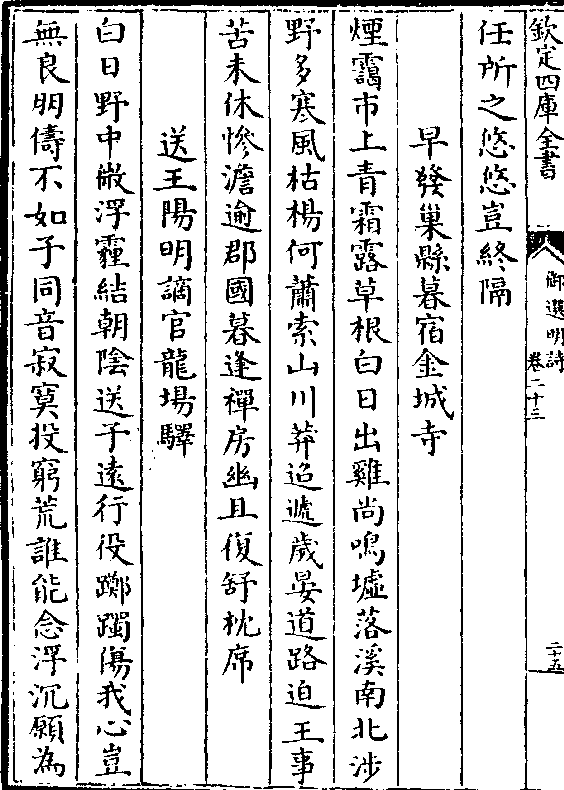 欽定四庫全書
御選明詩
卷二十三
二十五
任所之悠悠豈終隔
早發巢縣暮宿金城寺
煙靄市上青霜露草根白日出雞尚鳴墟落溪南北涉
野多寒風枯楊何蕭索山川莽迢遞歲晏道路迫王事
苦未休慘澹逾郡國暮逢禪房幽且復舒枕席
送王陽明謫官龍場驛
白日野中微浮霾結朝陰送子遠行役躑躅傷我心豈
無良朋儔不如子同音寂寞投窮荒誰能念浮沉願為